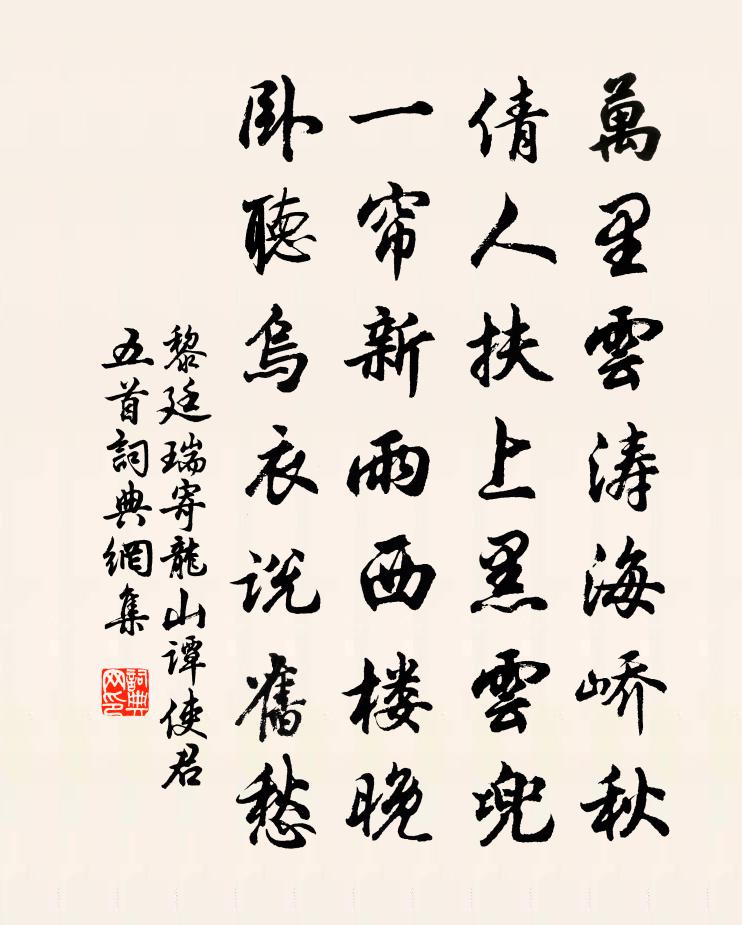 萬里雲涛海嶠秋
倩人扶上黑雲兜
一帘新雨西楼晚
卧聽烏衣说舊愁
黎廷瑞寄龍山谭使君
五首詞典網集
詞典
网印